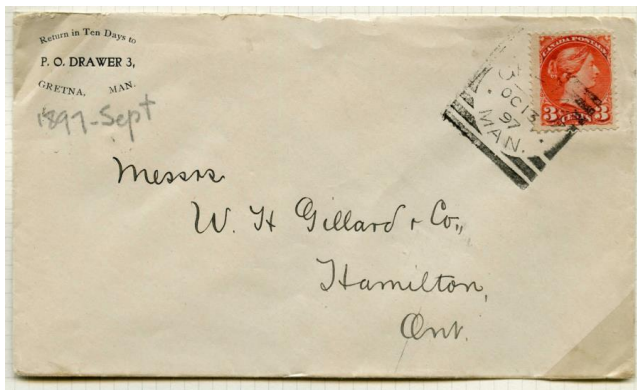 Return in Ten Days to
P. O. DRAWER 3,
GRETNA, MAN.
1897-Sept
OC 13
97
MAN.
CANADA POSTAGE
3 CENTS 3
Messrs.
W. H Gillard & Co.,
Hamilton,
Ont.